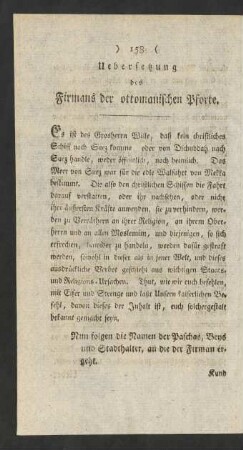 ) 158 (
Uebersetzung
des
Firmans der ottomanischen Pforte.
Es ist des Grosherrn Wille, daß kein christliches
Schiff nach Suez komme oder von Dschiddah nach
Suez handle, weder öffentlich, noch heimlich. Das
Meer von Suez war für die edle Walfahrt von Mekka
bestimmt. Die also den christlichen Schiffen die Fahrt
darauf verstatten, oder ihr nachsehen, oder nicht
ihre äussersten Kräfte anwenden, sie zu verhindern, wer-
den zu Verräthern an ihrer Religion, an ihrem Ober-
herrn und an allen Moslemim, und diejenigen, so sich
erfrechen, darwider zu handeln, werden dafür gestraft
werden, sowohl in dieser als in jener Welt, und dieses
ausdrückliche Verbot geschieht aus wichtigen Staats-
und Religions-Ursachen. Thut, wie wir euch befehlen,
mit Eifer und Strenge und laßt Unsern kaiserlichen Be-
fehl, davon dieses der Inhalt ist, euch solchergestalt
bekannt gemacht seyn.
Nun folgen die Namen der Paschas, Beys
und Stadthalter, an die der Firman er-
geht.
Kund